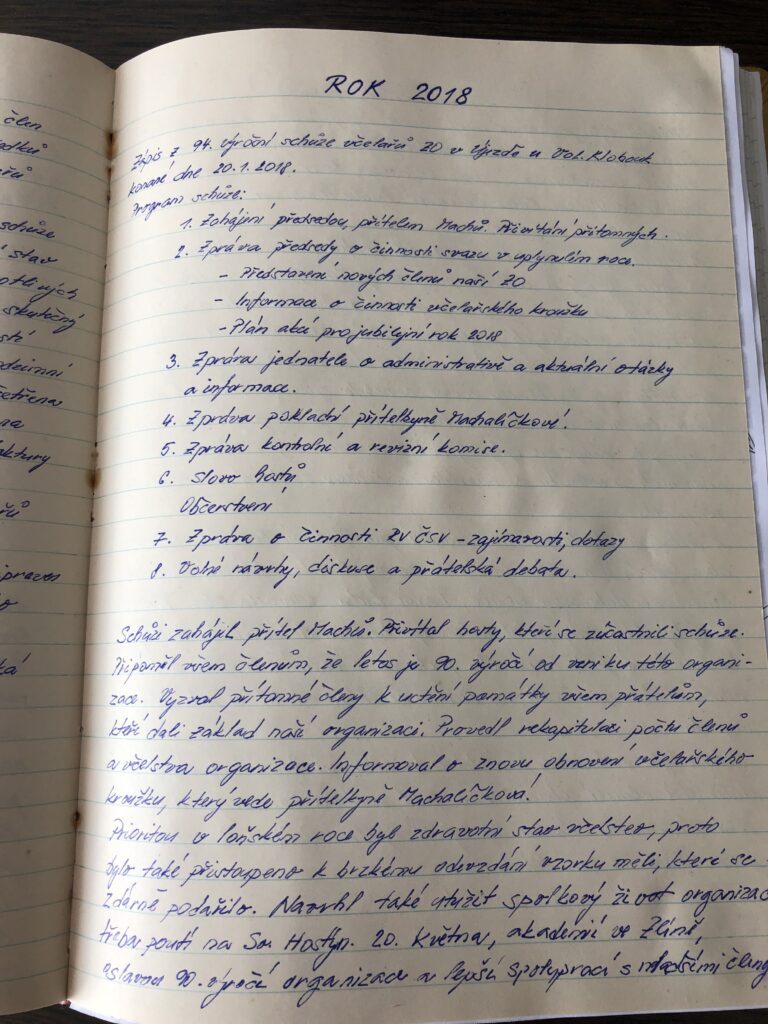 ROK 2018
Zápis z 94. výroční schůze včelařů ZO v Újezdě u Val. Klobouk
konané dne 20.1.2018.
Program schůze:
1. Zahájení předsedou, přítelem Machů. Přivítání přítomných.
2. Zpráva předsedy o činnosti svazu v uplynulém roce.
- Představení nových členů naší ZO
- Informace o činnosti včelařského kroužku
- Plán akcí pro jubilejní rok 2018
3. Zpráva jednatele o administrativě a aktuální otázky
a informace.
4. Zpráva pokladní přítelkyně Machalíčkové.
5. Zpráva kontrolní a revizní komise.
6. Slovo hostů
Občerstvení
7. Zpráva o činnosti RV ČSV - zajímavosti, dotazy
8. Volné návrhy, diskuse a přátelská debata.
Schůzi zahájil přítel Machů. Přivítal hosty, kteří se zúčastnili schůze.
Připoměl všem členům, že letos je 90. výročí od vzniku této organi-
zace. Vyzval přítomné členy k uctění památky všem přátelům,
kteří dali základ naší organizaci. Provedl rekapitulaci počtu členů
a včelstva organizace. Informoval o znovu obnovení včelařského
kroužku, který vede přítelkyně Machalíčková.
Prioritou v loňském roce byl zdravotní stav včelstev, proto
bylo také přistoupeno k brzkému odevzdání vzorku měli, které se
zdárně podařilo. Navrhl také utužit spolkový život organizac
třeba poutí na Sv. Hostýn. 20. Května, akademií ve Zlíně,
oslavou 90. výročí organizace a lepší spoluprací s mladšími členy
člen
schůze
stav
skutečný